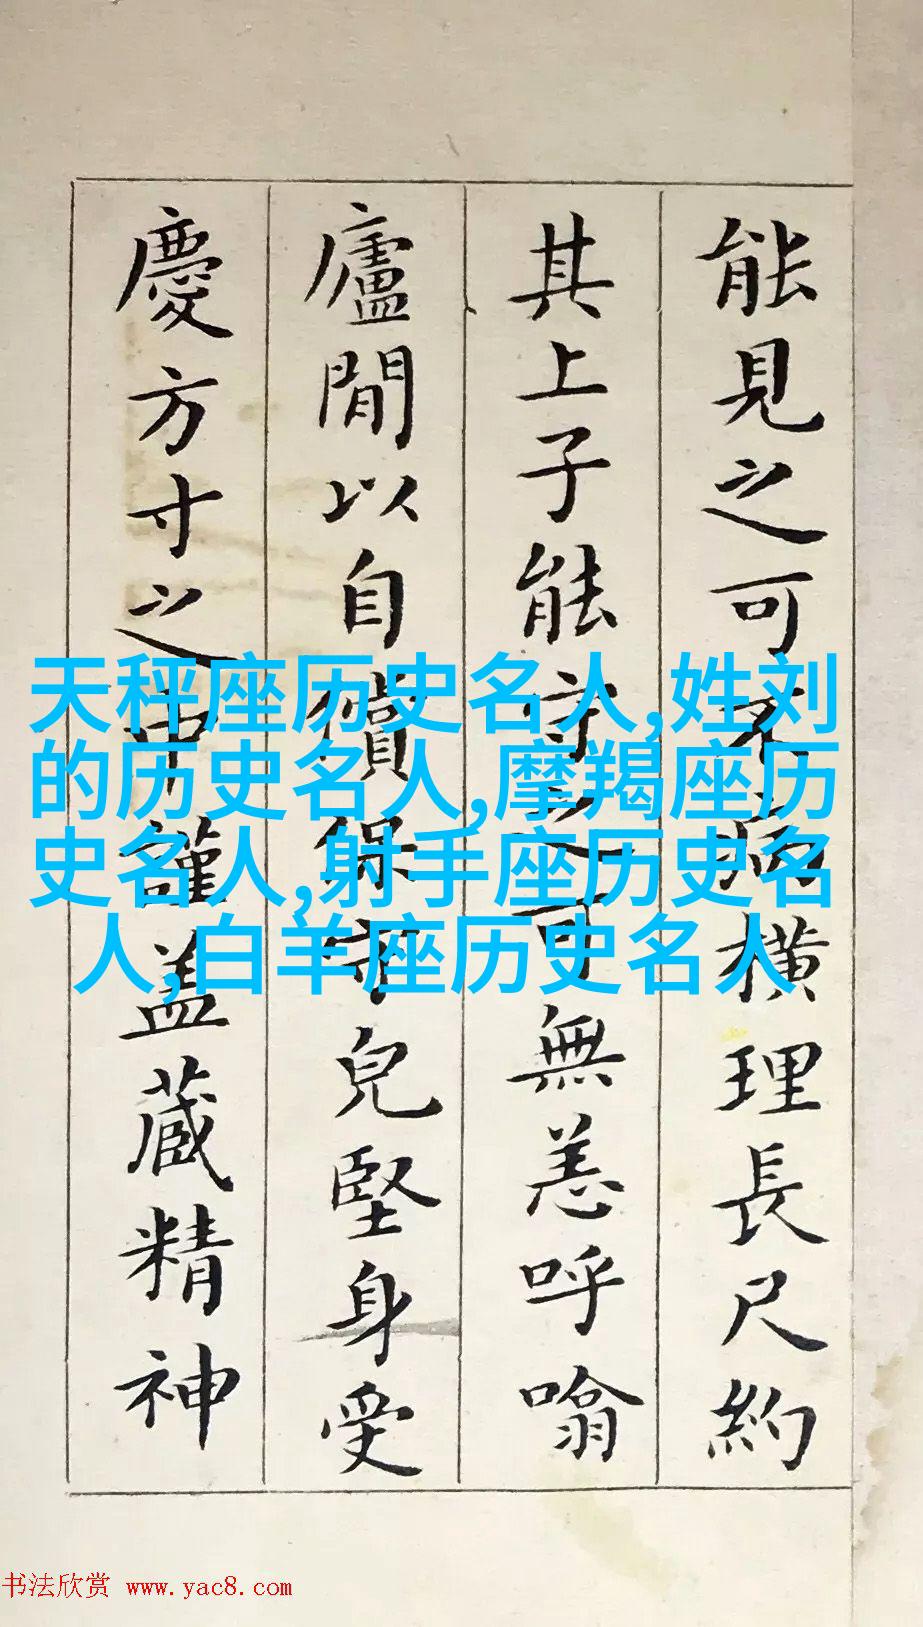 能見之可不病橫理長尺約
其上子能守之可無恙呼噏
廬閒以自償保守兒堅身受
慶方寸之中謹蓋藏精神
天秤座历史名人,姓刘
的历史名人,摩羯座历
史名人,射手座历史名
人,白羊座历史名人
书法欣赏 www.yac8.com